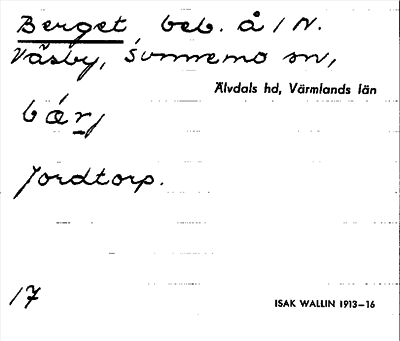 Berget, beb. å 1 N.
Väsby, Sunnemo sn,
Älvdals hd, Värmlands län
Jordtorp.
17
ISAK WALLIN 1913–16